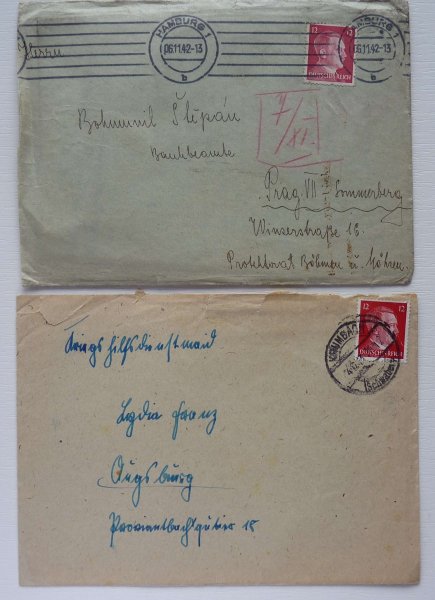 HAMBURG 1
06.11.42-13
b
HAMBURG 1
06.11.42-13
b
12 12
DEUTSCHES REICH
Herrn
Bohumil Štěpán
Bankbeamte
7/XI.
Prag VII Sommerberg
Winzerstraße 18.
Protektorat Böhmen u. Mähren.
12 12
DEUTSCHES REICH
KRUMBACH
(Schwaben)
Kriegshilfsdienstmaid
Lydia Franz
Augsburg
Proviantbachquartier 18